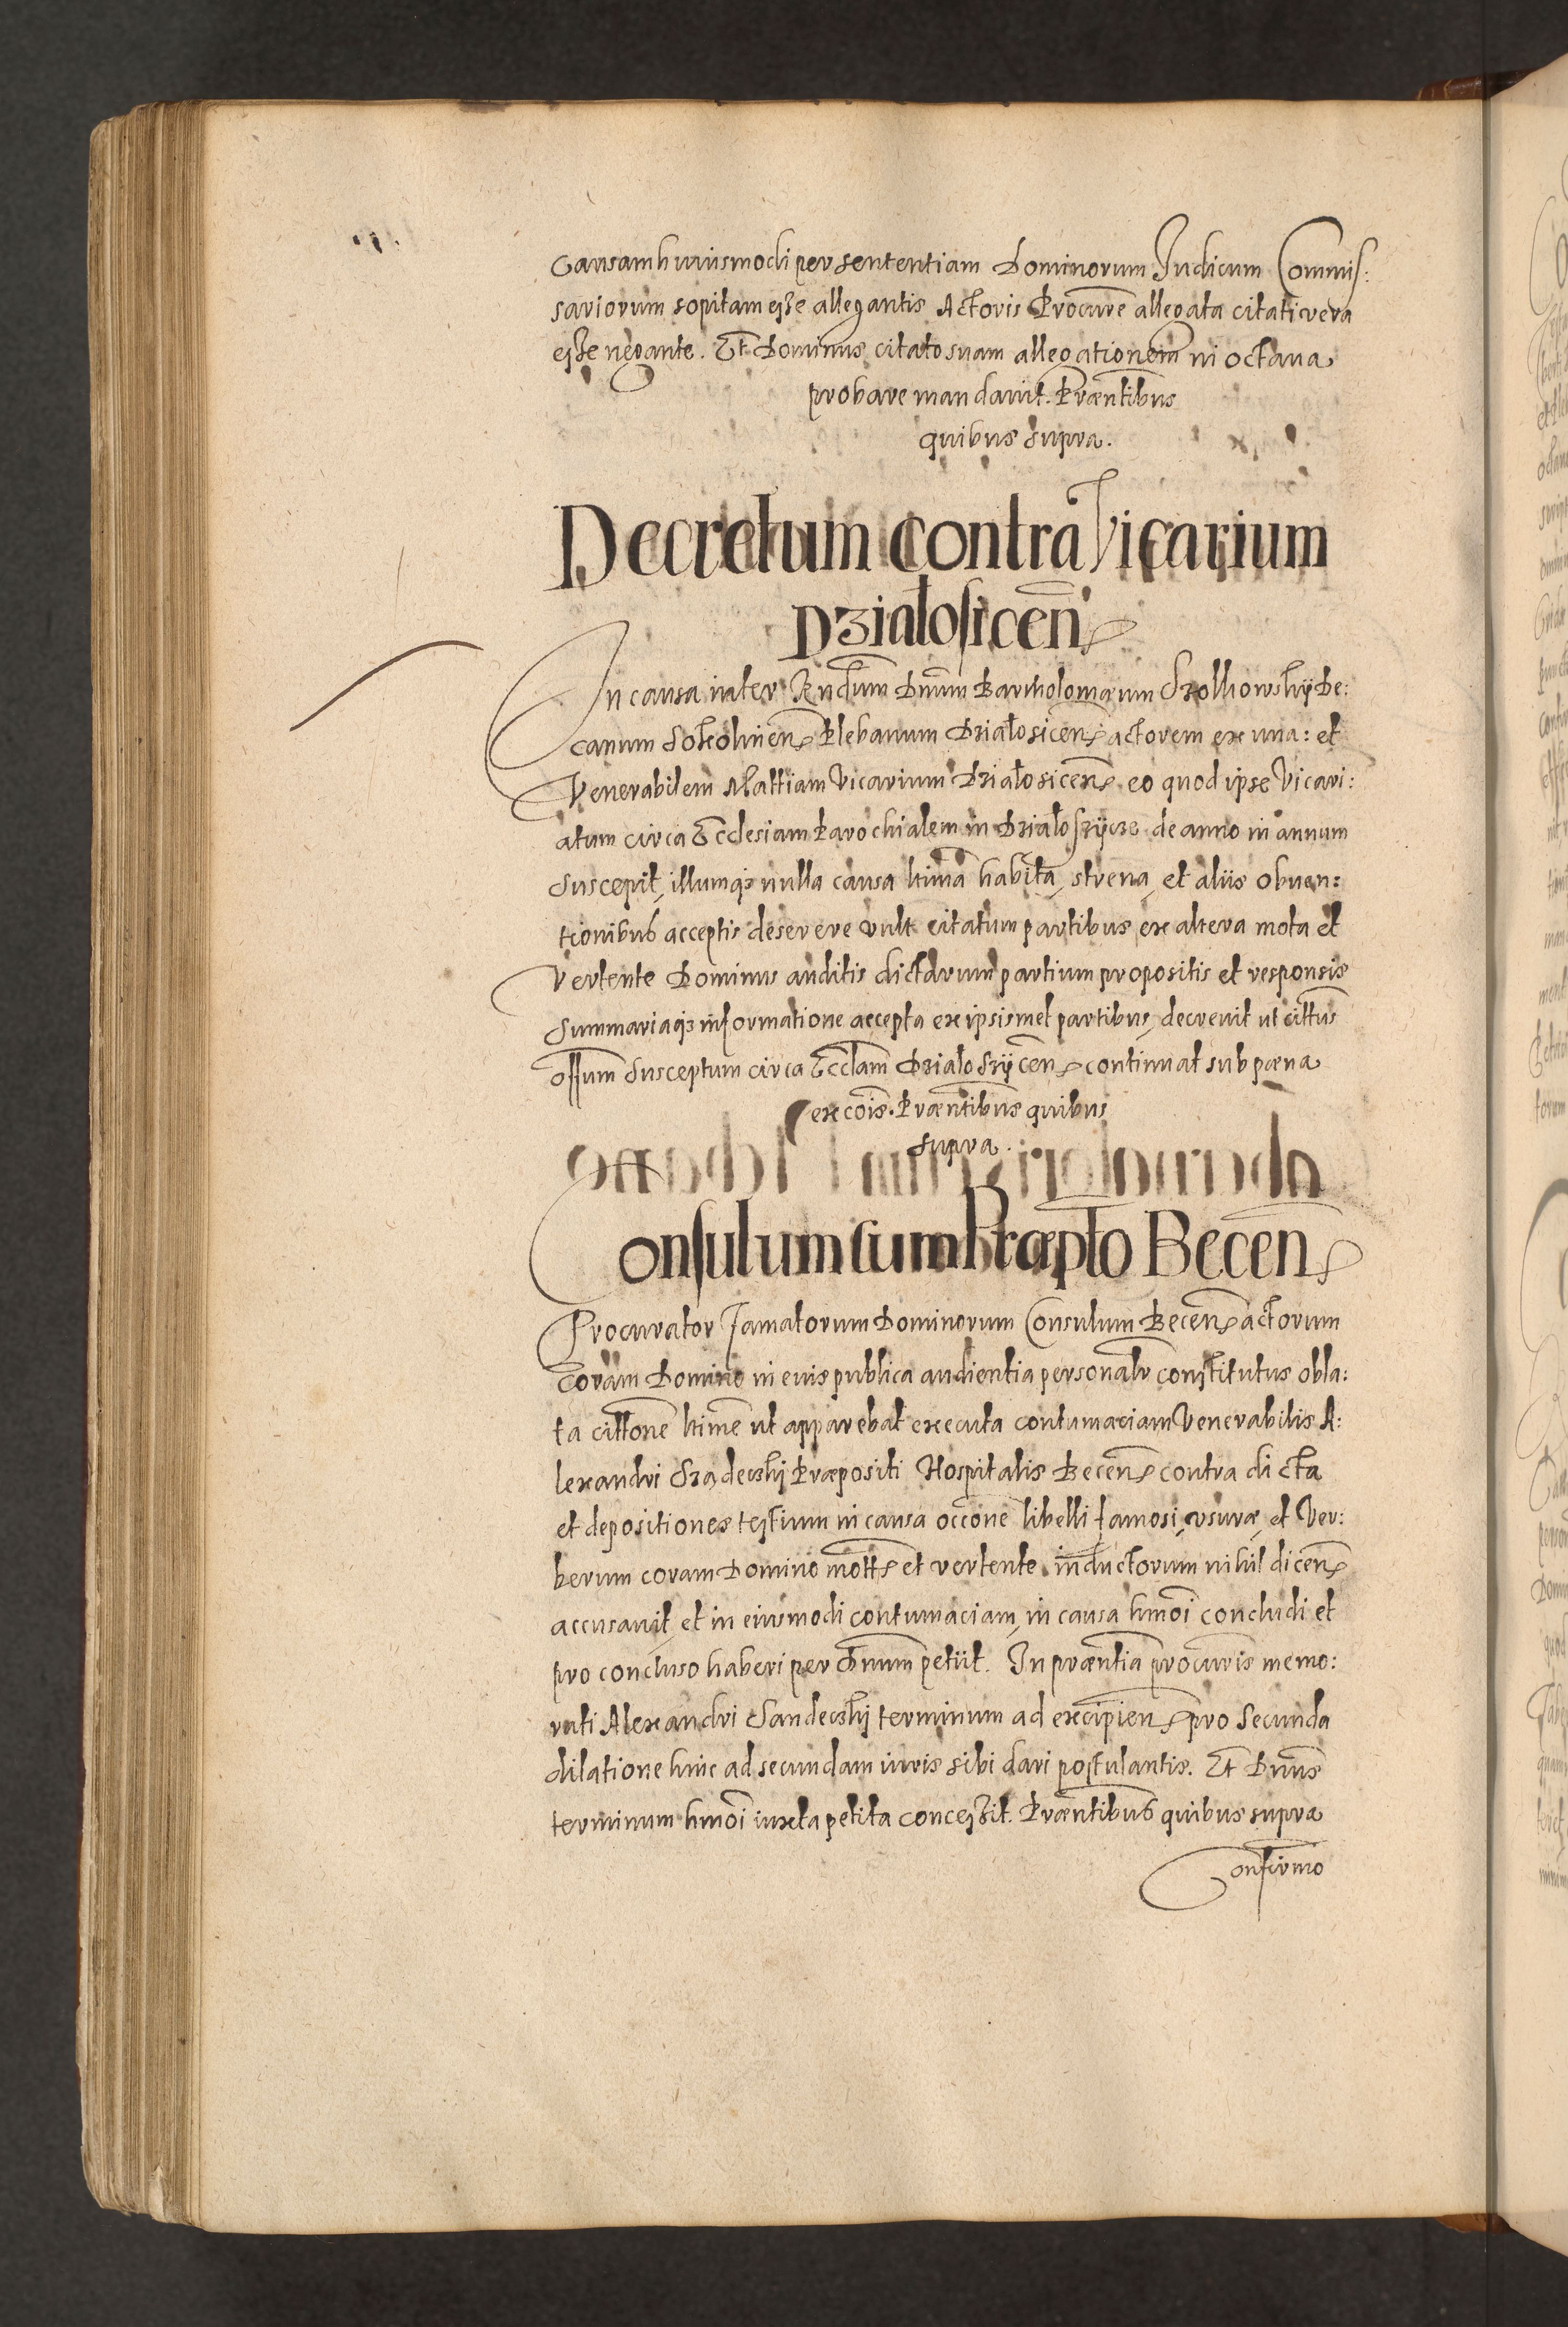 Causam huiusmodi per sententiam Dominorum Iudicum Commis:
sariorum sopitam esse allegantis Actoris Procure allegata citati vera
esse negante. Et Dominus citato suam allegationem in octava
probare mandavit. Præntibus
quibus supra.
Decretum contra Vicarium
Działosicen
In causa inter Rndum Dnum Bartholomæum De:
canum Plebanum Działosicen actorem ex una: et
Venerabilem Mattiam Vicarium Działosicen eo quod ipse Vicari:
atum circa Ecclesiam Parochialem in de anno in annum
suscepit, illumq3 nulla causa ltima habita, strena, et aliis obuen:
tionibus acceptis deserere vult citatum partibus ex altera mota et
vertente Dominus auditis dictarum partium propositis et responsis
summariaq3 informatione accepta ex ipsismet partibus, decrevit ut cittus
offum susceptum circa Ecclam Działoszycen continuat sub pæna
excois. Præntibus quibus
supra.
Consulum cum Præpto Becen
Procurator famatorum Dominorum Consulum Becen actorum
Coram Domino in eius publica audientia personalr constitutus obla:
ta cittone ltime ut apparebat executa contumaciam Venerabilis A:
lexandri Sządecskij Præpositi Hospitalis Becen contra dicta
et depositiones testium in causa occone libelli famosi, vsuræ, et Ver:
berum coram Domino mott et vertente inductorum nihil dicen
accusavit, et in eiusmodi contumaciam, in causa hmoi concludi et
pro concluso haberi per Dnum petiit. In præntia procuris memo:
rati Alexandri Sandecskij terminum ad excipien pro secunda
dilatione hinc ad secundam iuris sibi dari postulantis. Et Dnus
terminum hmoi iuxta petita concessit. Præntibus quibus supra
Confirmo